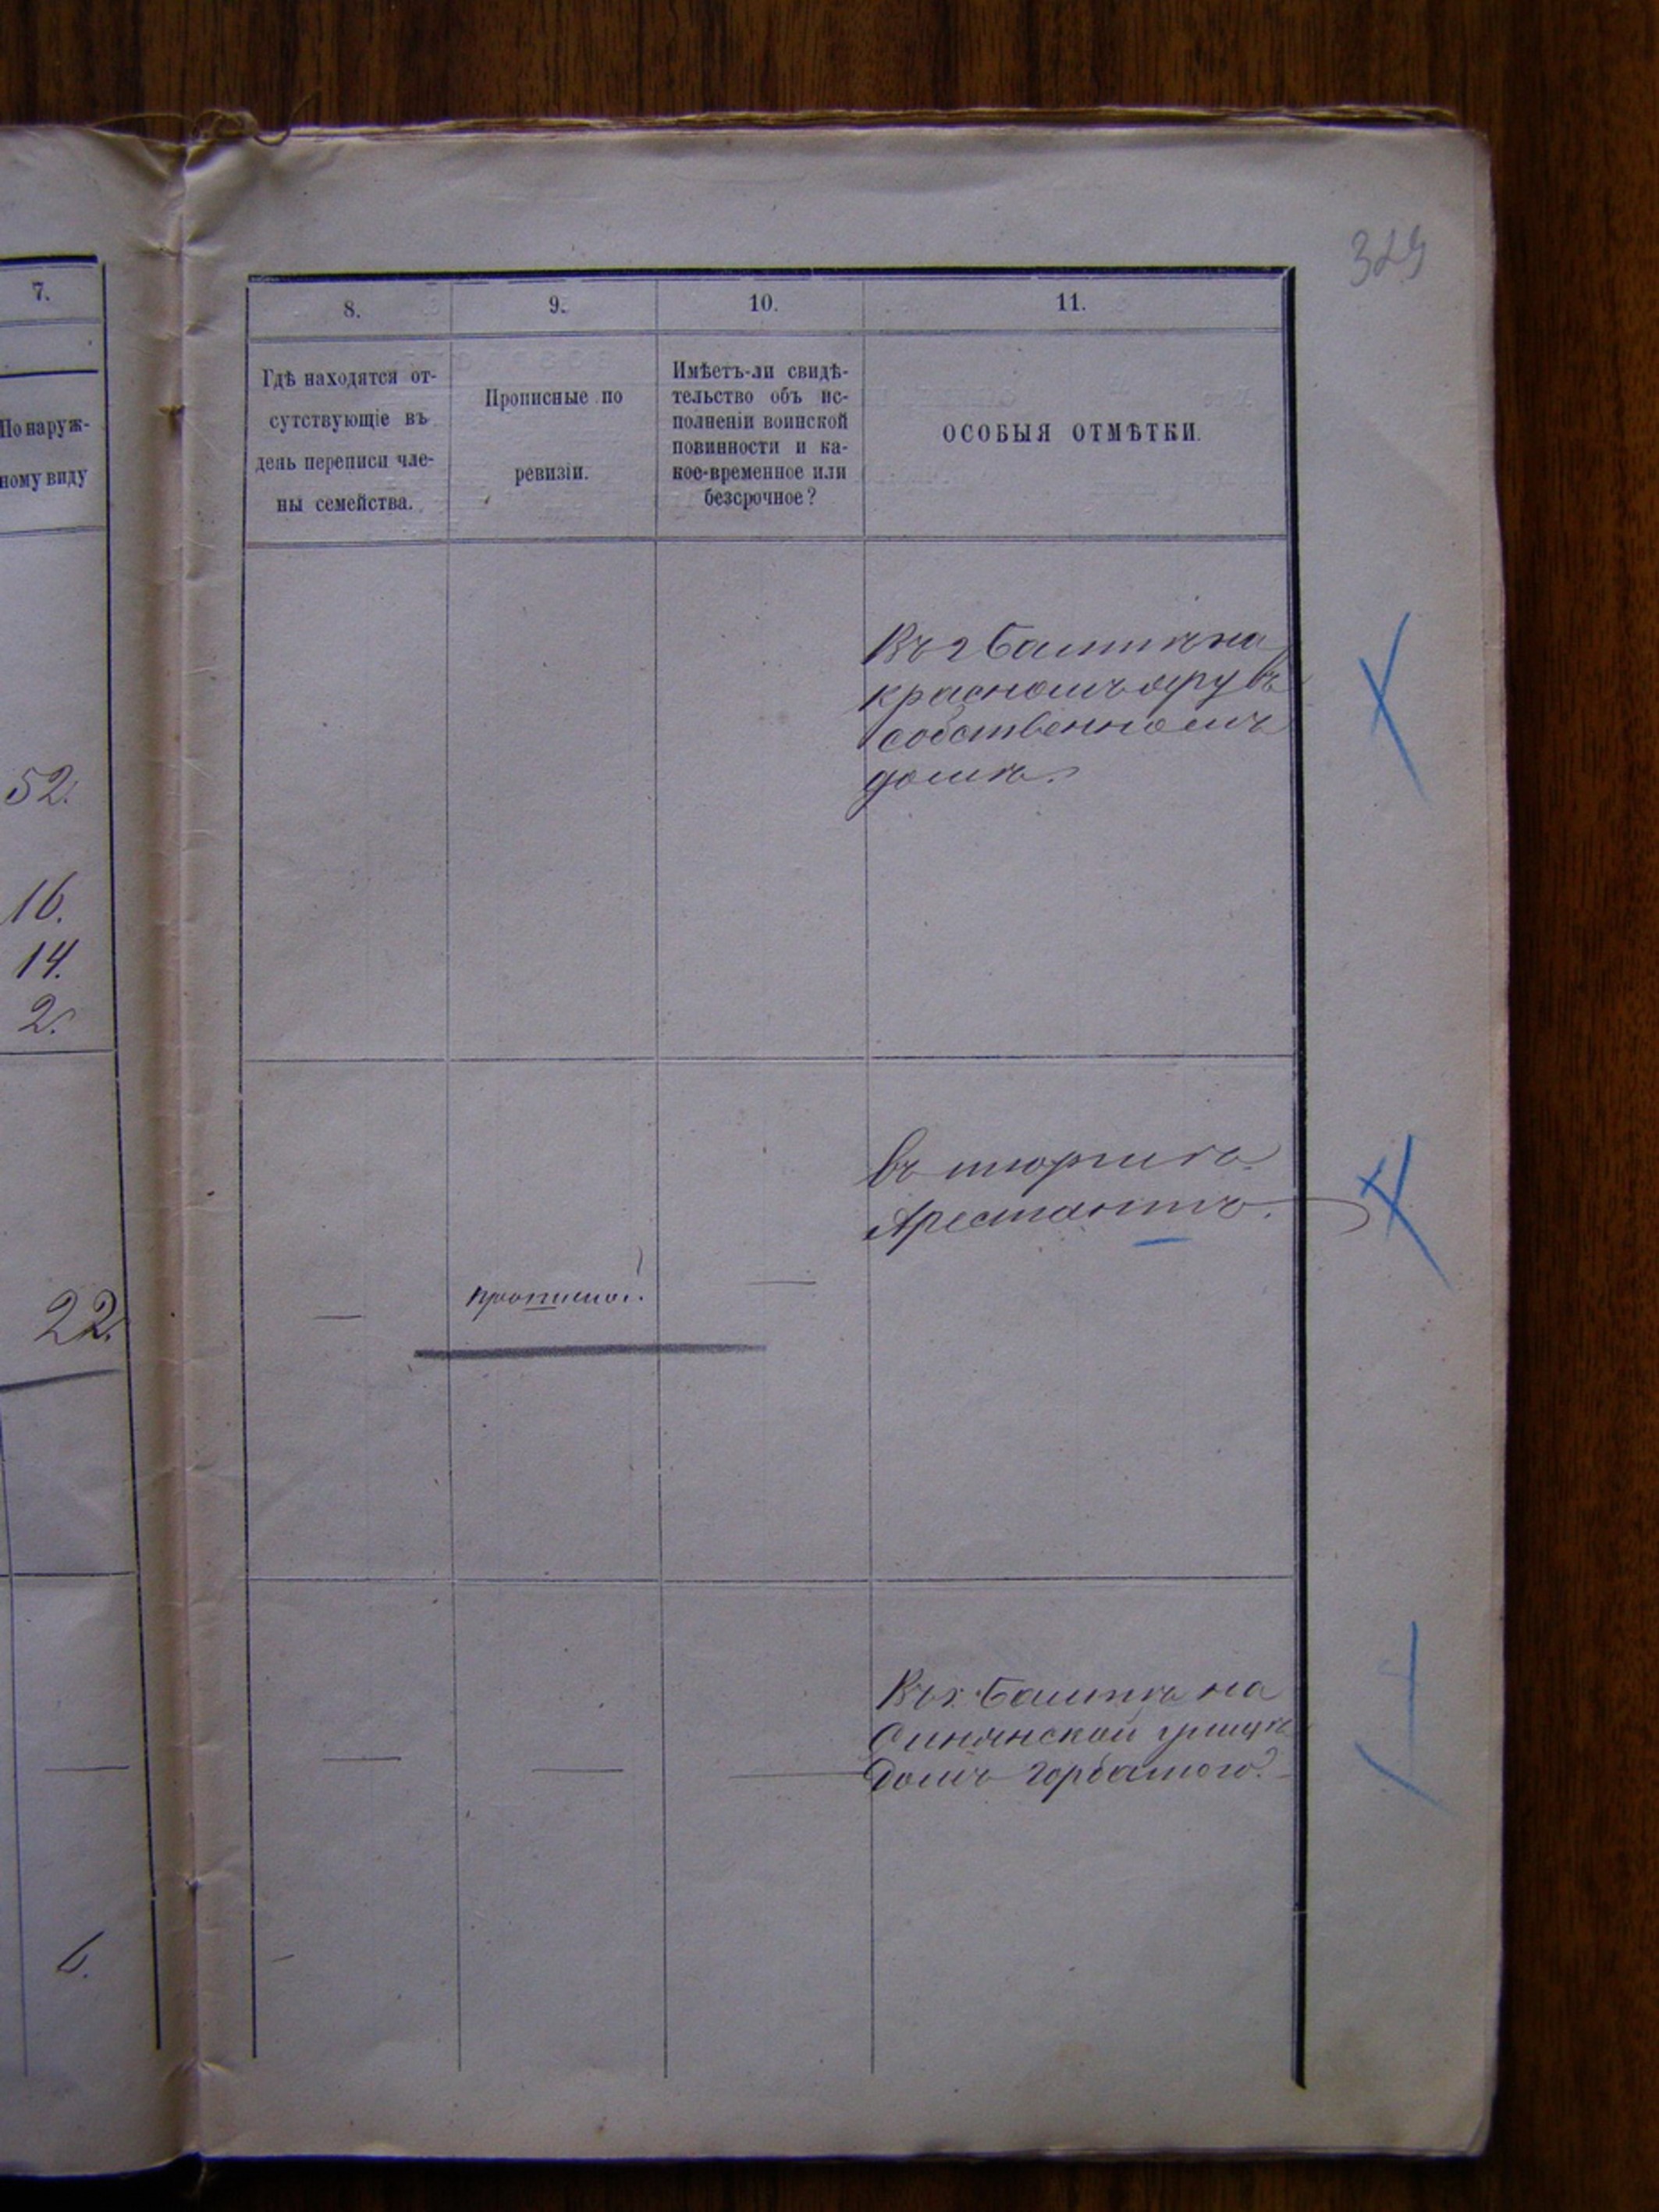 329
7.
По наруж-
ному виду
52.
16.
14.
2.
22.
6.
8.
9.
10.
11.
Гдѣ находятся от-
сутствующіе въ
день переписи чле-
ны семейства.
Прописные по
ревизіи.
Имѣетъ-ли свидѣ-
тельство объ ис-
полненіи воинской
повинности и ка-
кое-временное или
безсрочное?
ОСОБЫЯ ОТМѢТКИ.
Въ г Балтѣ на
красномъ яру въ
собственномъ
домѣ.
въ тюрьмѣ
Арестантъ.
прописной
Въ г. Балтѣ на
Синянской улицѣ
Домъ Горбатого.